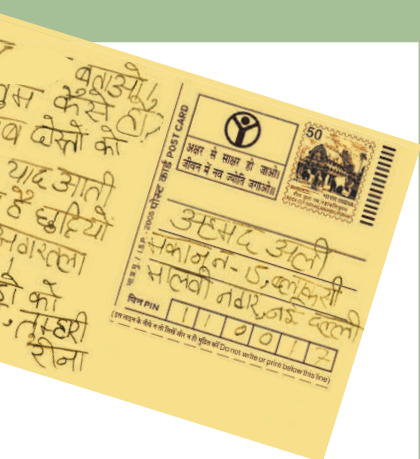 बताओ!
तुम कैसे हो?
दोस्तों को
याद आती
हैं छुट्टियों
अगरतला
को
, तुम्हारी
रीना
भा.प्र.मु. / I.S.P. - 2005 पोस्ट कार्ड POST CARD
अक्षर से साक्षर हो जाओ।
जीवन में नव ज्योति जगाओ॥
50
भारत INDIA
अहमद अली
मकान न. - 15, ब्लाक सी
मालवी नगर, नई दिल्ली
पिन PIN
110017
(इस लाइन के नीचे न तो लिखें और न ही मुद्रित करें Do not write or print below this line)